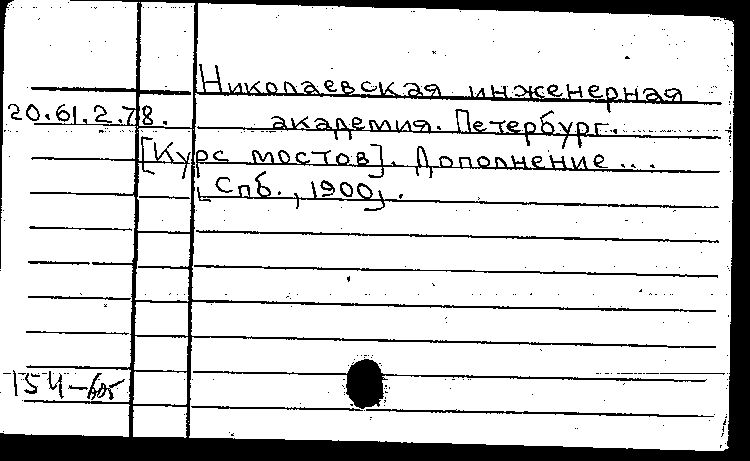 Николаевская инженерная
20.61.2.78. академия. Петербург.
[Курс мостов]. Дополнение...
[Спб., 1900].
154-